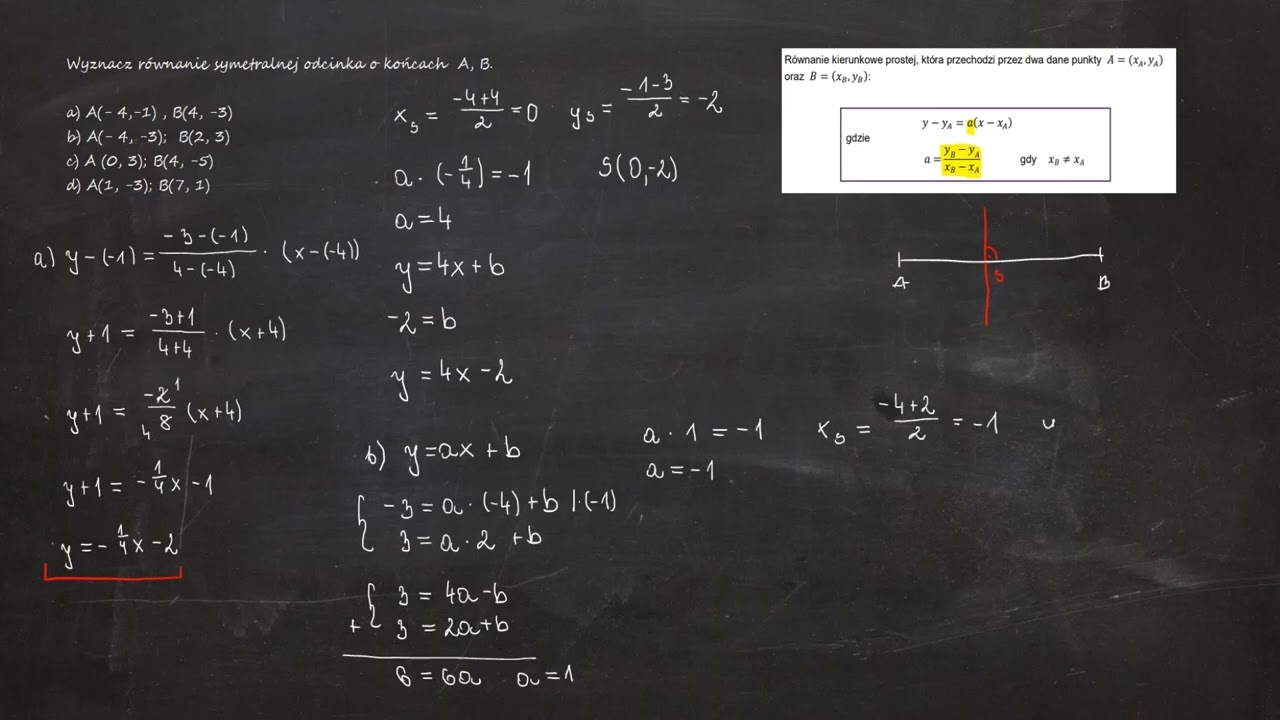 Wyznacz równanie symetralnej odcinka o końcach A, B.
a) A(- 4,-1) , B(4, -3)
b) A(- 4, -3); B(2, 3)
c) A (0, 3); B(4, -5)
d) A(1, -3); B(7, 1)
a) y-(-1) = \frac{-3-(-1)}{4-(-4)} · (x-(-4))
y+1 = \frac{-3+1}{4+4} · (x+4)
y+1 = \frac{-2}{8} (x+4)
1
4
y+1 = -\frac{1}{4}x -1
y = -\frac{1}{4}x -2
x_s = \frac{-4+4}{2} = 0 y_s = \frac{-1-3}{2} = -2
a · (-\frac{1}{4}) = -1 S(0,-2)
a = 4
y = 4x + b
-2 = b
y = 4x -2
b) y = ax + b
-3 = a · (-4) + b |·(-1)
3 = a · 2 + b
3 = 4a - b
+ 3 = 2a + b
6 = 6a a = 1
a · 1 = -1 x_s = \frac{-4+2}{2} = -1
a = -1
Równanie kierunkowe prostej, która przechodzi przez dwa dane punkty A = (x_A, y_A)
oraz B = (x_B, y_B):
y − y_A = a(x − x_A)
gdzie
a = \frac{y_B − y_A}{x_B − x_A} gdy x_B ≠ x_A
A S B